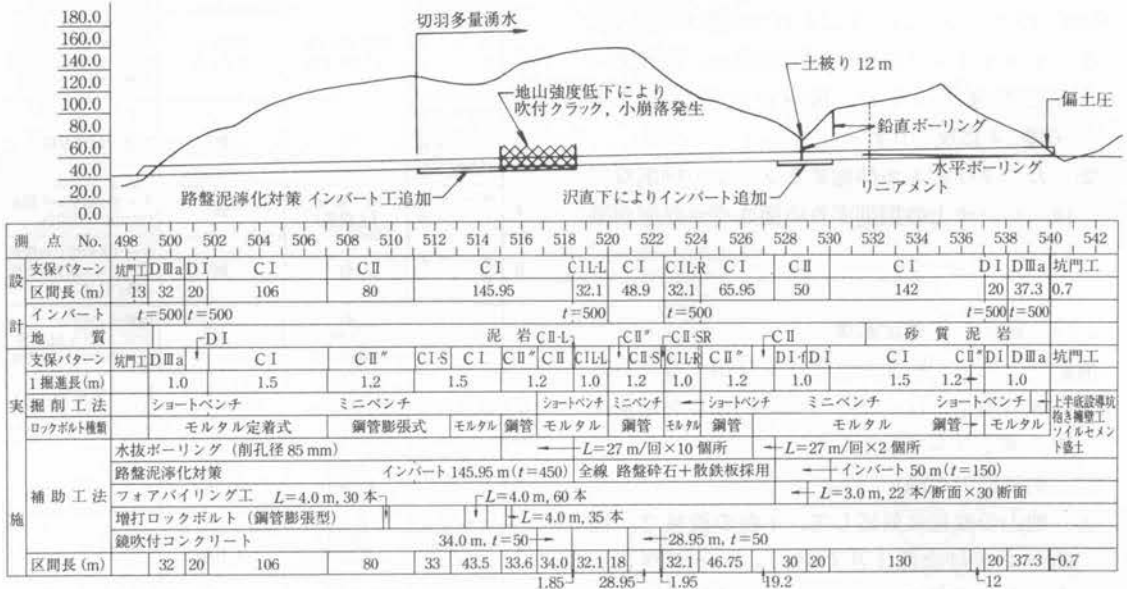 180.0
160.0
140.0
120.0
100.0
80.0
60.0
40.0
20.0
0.0
切羽多量湧水
地山強度低下により
吹付クラック, 小崩落発生
土被り 12 m
鉛直ボーリング
偏土圧
水平ボーリング
リニアメント
路盤泥濘化対策 インバート工追加
沢直下によりインバート追加
測点 No. 498 500 502 504 506 508 510 512 514 516 518 520 522 524 526 528 530 532 534 536 538 540 542
設計
支保パターン 坑門工 DⅢa DⅠ CⅠ CⅡ CⅠ CⅠL-L CⅠ CⅠL-R CⅠ CⅡ CⅠ DⅠ DⅢa 坑門工
区間長 (m) 13 32 20 106 80 145.95 32.1 48.9 32.1 65.95 50 142 20 37.3 0.7
インバート t=500 t=500 t=500 t=500 t=500 t=500
地質 DⅠ 泥岩 CⅡ-L CⅡ″ CⅡ-SR CⅡ 砂質泥岩
実施
支保パターン 坑門工 DⅢa CⅠ CⅡ″ CⅠ-S CⅠ CⅡ″ CⅡ CⅡL-L CⅡ-S CⅡL-R CⅡ″ DⅠ-f DⅠ CⅠ CⅡ″ DⅠ DⅢa 坑門工
1掘進長(m) 1.0 1.5 1.2 1.5 1.2 1.0 1.2 1.0 1.2 1.0 1.5 1.2 1.0
掘削工法 ショートベンチ ミニベンチ ショートベンチ ミニベンチ ショートベンチ ミニベンチ ショートベンチ 上半底設導坑
抱き擁壁工
ソイルセメント盛土
ロックボルト種類 モルタル定着式 鋼管膨張式 モルタル 鋼管 モルタル 鋼管 モルタル 鋼管 モルタル 鋼管 モルタル
補助工法
水抜ボーリング (削孔径 85 mm) L=27 m/回×10 個所 L=27 m/回×2 個所
路盤泥濘化対策 インバート 145.95 m (t=450) 全線 路盤砕石+散鉄板採用 インバート 50 m (t=150)
フォアパイリング工 L=4.0 m, 30 本 L=4.0 m, 60 本 L=3.0 m, 22 本/断面×30 断面
増打ロックボルト (鋼管膨張型) L=4.0 m, 35 本
鏡吹付コンクリート 34.0 m, t=50 28.95 m, t=50
区間長 (m) 32 20 106 80 33 43.5 33.6 34.0 32.1 18 32.1 46.75 30 20 130 20 37.3 0.7
1.85 28.95 1.95 19.2 12